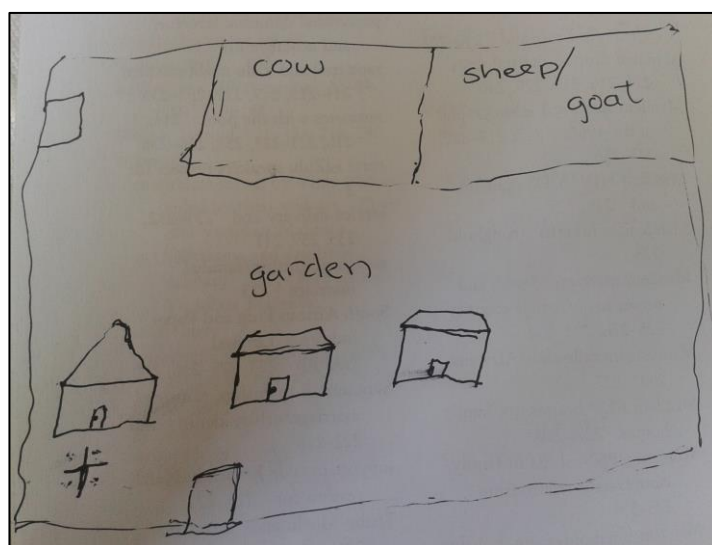 cow
sheep/
goat
garden